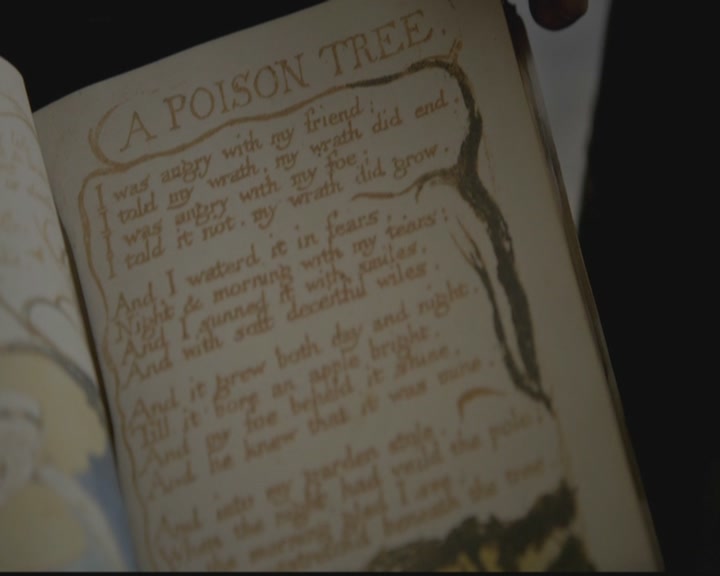 A POISON TREE.
I was angry with my friend:
I told my wrath, my wrath did end.
I was angry with my foe:
I told it not, my wrath did grow.
And I waterd it in fears,
Night & morning with my tears:
And I sunned it with smiles,
And with soft deceitful wiles.
And it grew both day and night.
Till it bore an apple bright.
And my foe beheld it shine.
And he knew that it was mine.
And into my garden stole.
When the night had veild the pole;
the morning glad I see.
beneath the tree